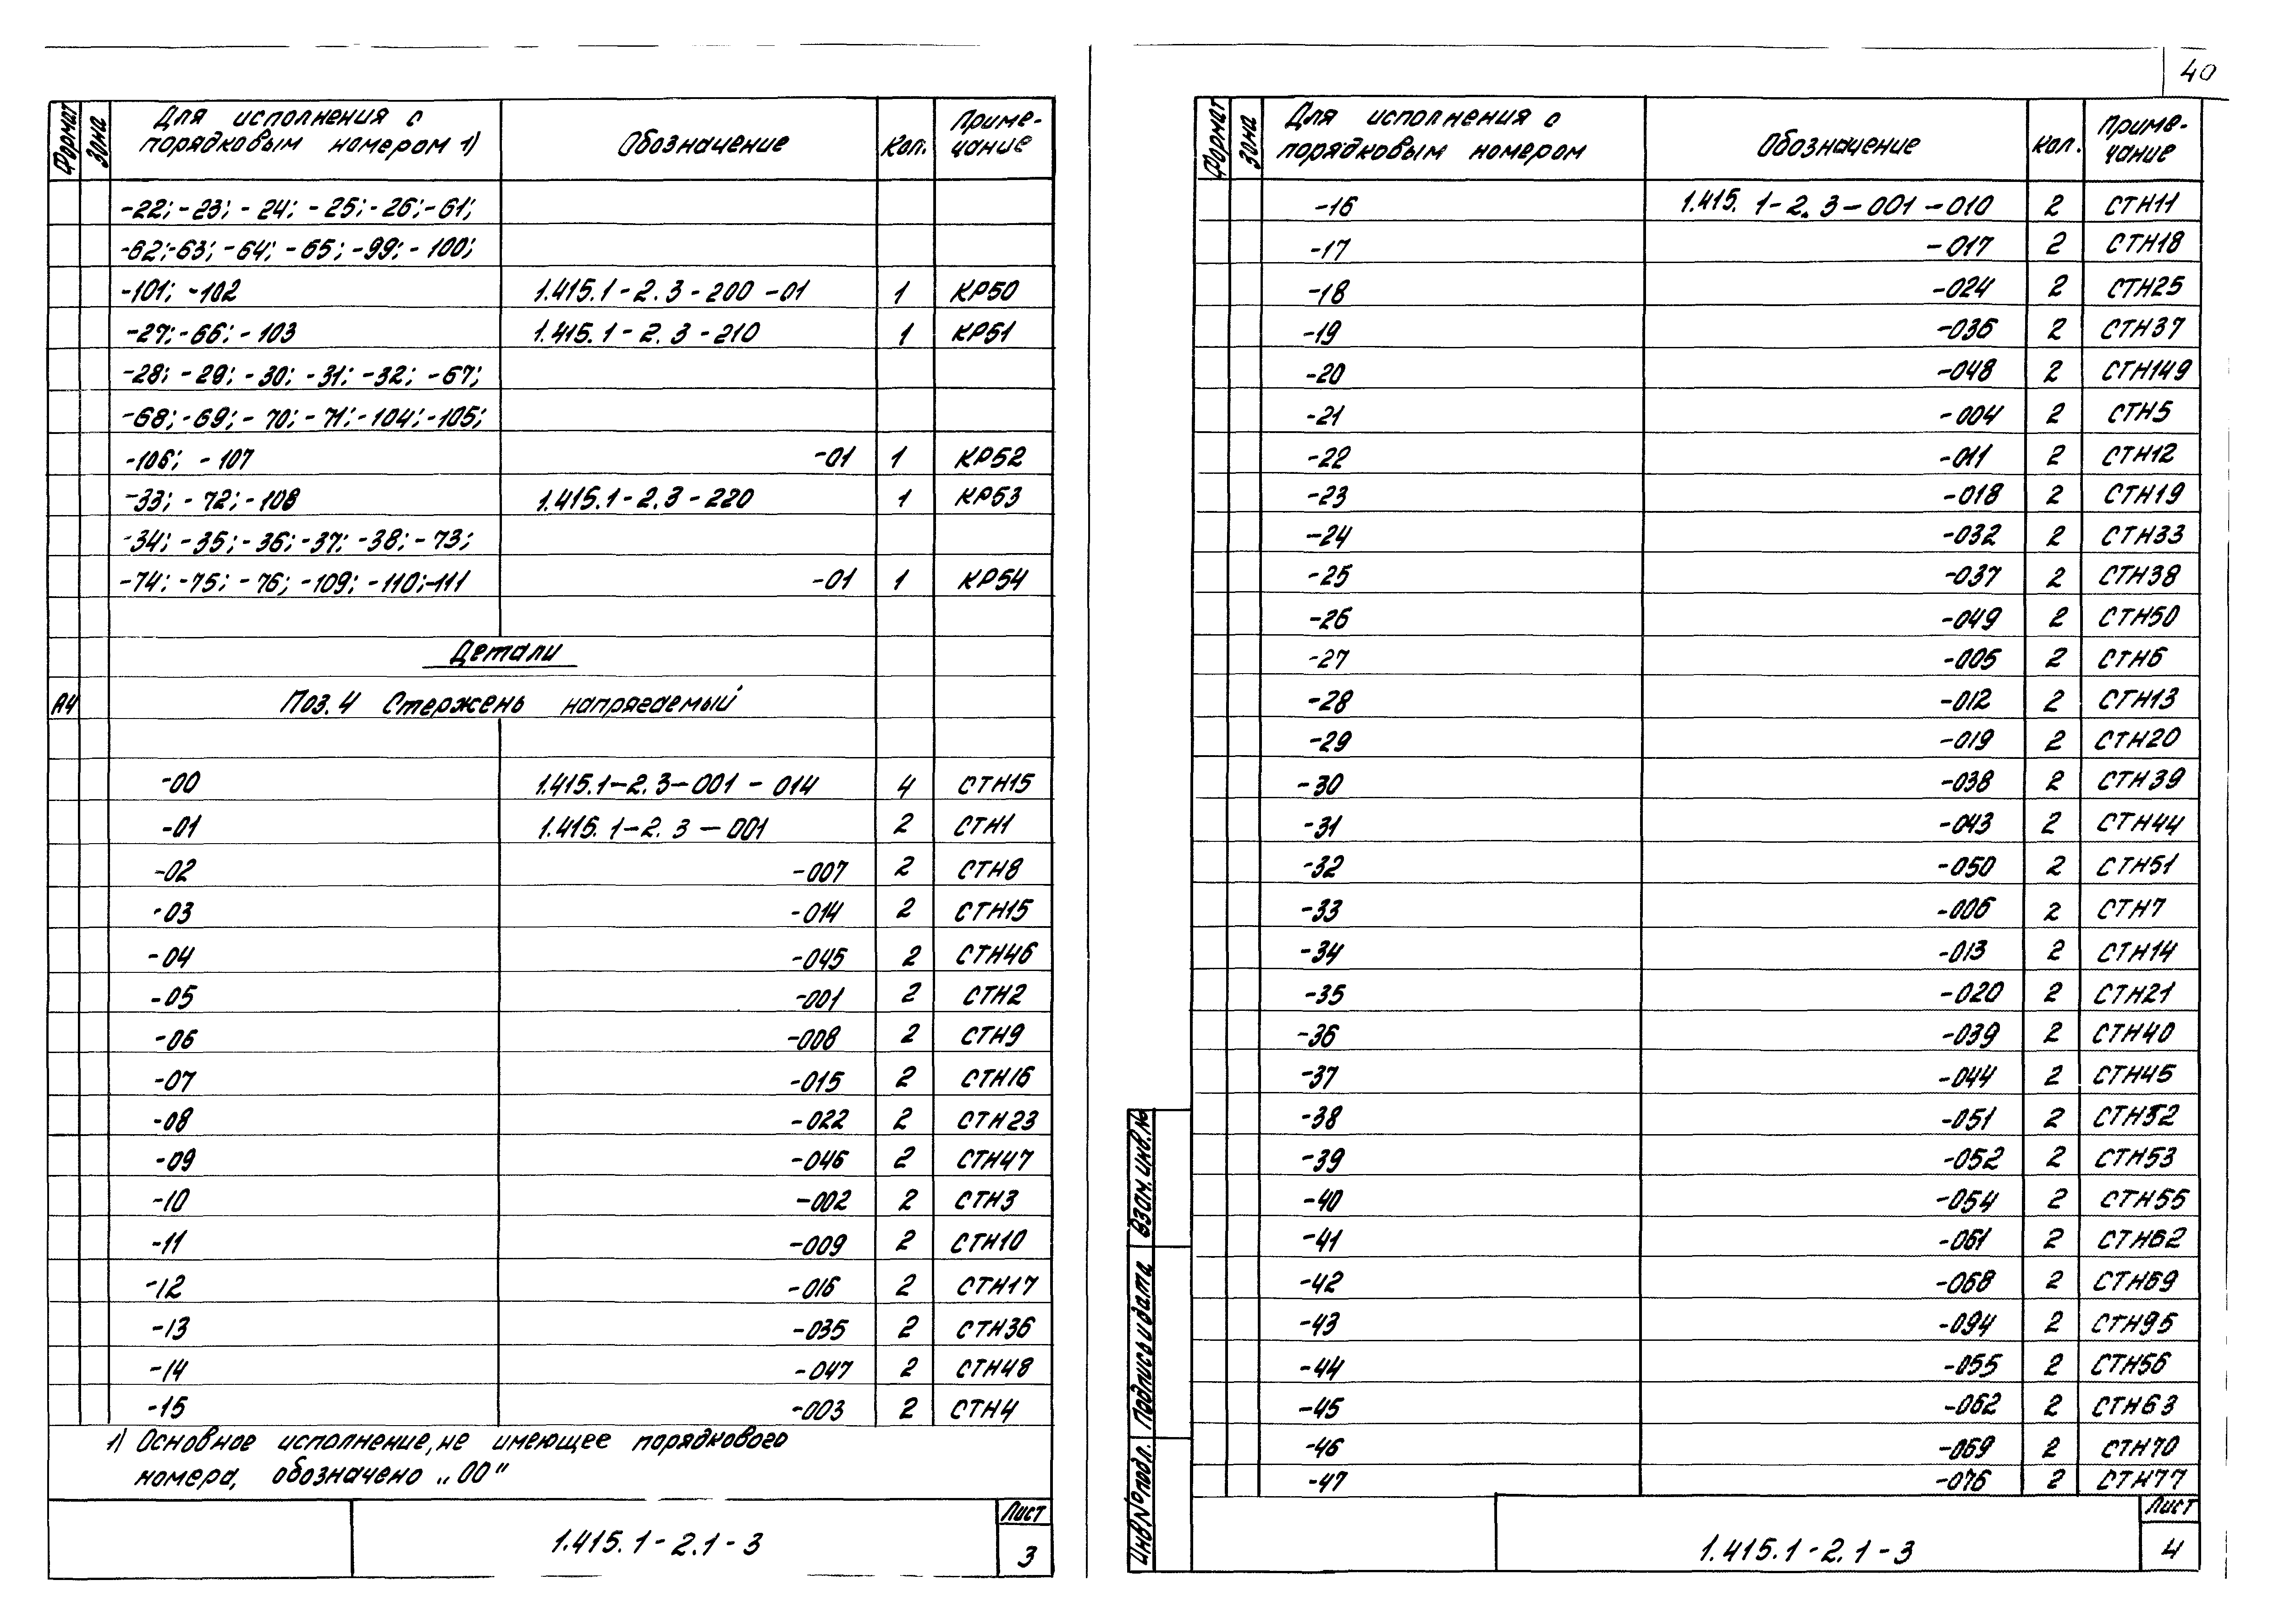 40
Формат Зона Для исполнения с порядковым номером 1) Обозначение Кол. Приме-чание
-22; -23; -24; -25; -26; -61;
-62; -63; -64; -65; -99; -100;
-101; -102 1.415.1-2.3-200-01 1 КР50
-27; -66; -103 1.415.1-2.3-210 1 КР51
-28; -29; -30; -31; -32; -67;
-68; -69; -70; -71; -104; -105;
-106; -107 -01 1 КР52
-33; -72; -108 1.415.1-2.3-220 1 КР53
-34; -35; -36; -37; -38; -73;
-74; -75; -76; -109; -110; -111 -01 1 КР54
Детали
А4 Поз. 4 Стержень напрягаемый
-00 1.415.1-2.3-001-014 4 СТН15
-01 1.415.1-2.3-001 2 СТН1
-02 -007 2 СТН8
-03 -014 2 СТН15
-04 -045 2 СТН46
-05 -001 2 СТН2
-06 -008 2 СТН9
-07 -015 2 СТН16
-08 -022 2 СТН23
-09 -046 2 СТН47
-10 -002 2 СТН3
-11 -009 2 СТН10
-12 -016 2 СТН17
-13 -035 2 СТН36
-14 -047 2 СТН48
-15 -003 2 СТН4
1) Основное исполнение, не имеющее порядкового
номера, обозначено „00"
1.415.1-2.1-3 Лист 3
Формат Зона Для исполнения с порядковым номером Обозначение Кол. Приме-чание
-16 1.415.1-2.3-001-010 2 СТН11
-17 -017 2 СТН18
-18 -024 2 СТН25
-19 -036 2 СТН37
-20 -048 2 СТН149
-21 -004 2 СТН5
-22 -011 2 СТН12
-23 -018 2 СТН19
-24 -032 2 СТН33
-25 -037 2 СТН38
-26 -049 2 СТН50
-27 -005 2 СТН6
-28 -012 2 СТН13
-29 -019 2 СТН20
-30 -038 2 СТН39
-31 -043 2 СТН44
-32 -050 2 СТН51
-33 -006 2 СТН7
-34 -013 2 СТН14
-35 -020 2 СТН21
-36 -039 2 СТН40
-37 -044 2 СТН45
-38 -051 2 СТН52
-39 -052 2 СТН53
-40 -054 2 СТН55
-41 -061 2 СТН62
-42 -068 2 СТН69
-43 -094 2 СТН95
-44 -055 2 СТН56
-45 -062 2 СТН63
-46 -069 2 СТН70
-47 -076 2 СТН77
Инв.№ подл. Подпись и дата Взам. инв.№
1.415.1-2.1-3 Лист 4